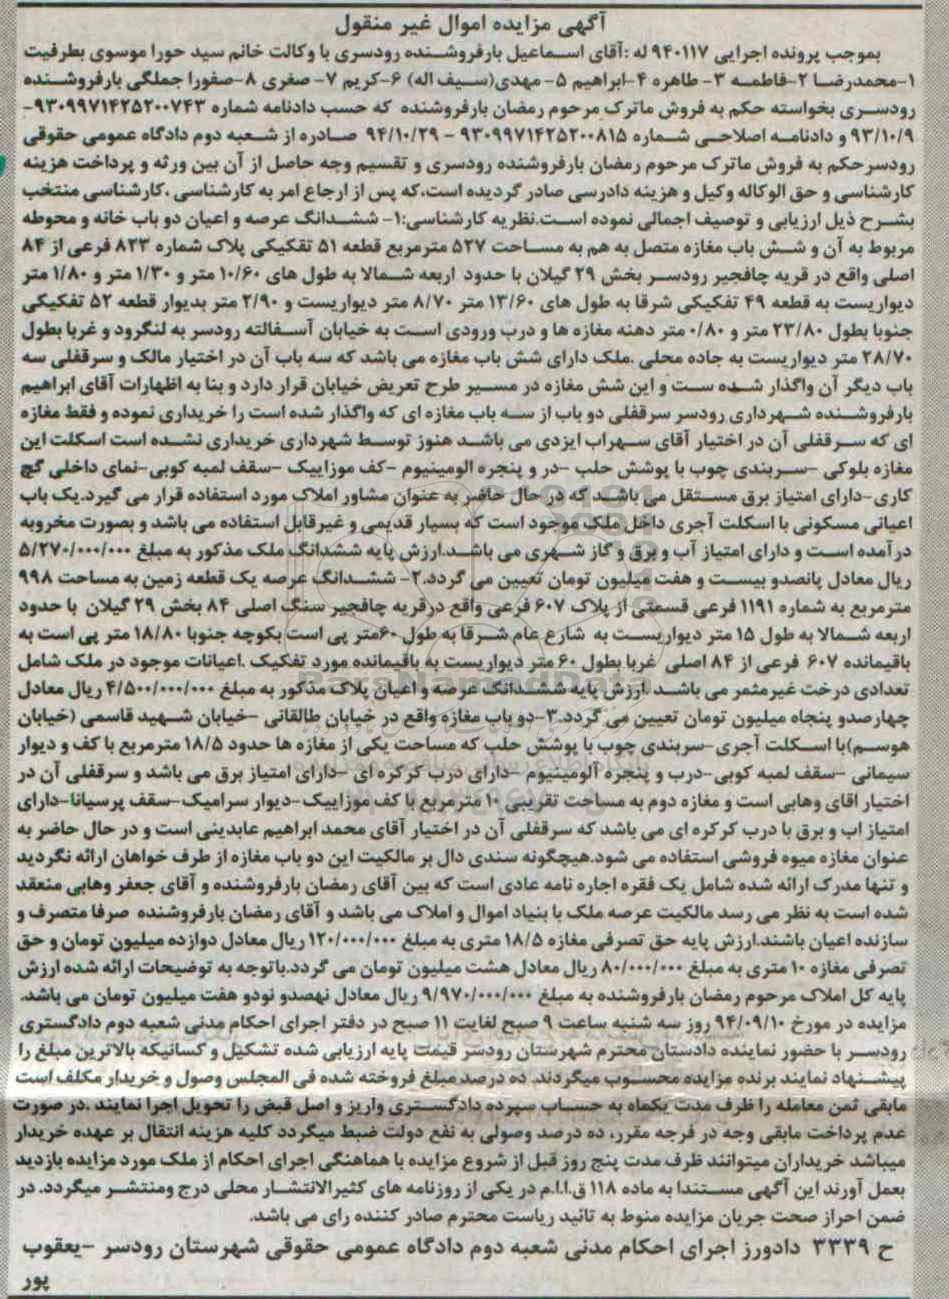 آگهی مزایده اموال غیر منقول
بموجب پرونده اجرایی ۹۴۰۱۱۷ له :آقای اسماعیل بارفروشنده رودسری با وکالت خانم سید حورا موسوی بطرفیت
۱-محمدرضا ۲-فاطمه ۳- طاهره ۴-ابراهیم ۵- مهدی(سیف اله) ۶-کریم ۷- صغری ۸-صفورا جملگی بارفروشنده
رودسری بخواسته حکم به فروش ماترک مرحوم رمضان بارفروشنده که حسب دادنامه شماره ۹۳۰۹۹۷۱۴۲۵۲۰۰۷۴۳-
۹۳/۱۰/۹ و دادنامه اصلاحی شماره ۹۳۰۹۹۷۱۴۲۵۲۰۰۸۱۵ - ۹۴/۱۰/۲۹ صادره از شعبه دوم دادگاه عمومی حقوقی
رودسرحکم به فروش ماترک مرحوم رمضان بارفروشنده رودسری و تقسیم وجه حاصل از آن بین ورثه و پرداخت هزینه
کارشناسی و حق الوکاله وکیل و هزینه دادرسی صادر گردیده است،که پس از ارجاع امر به کارشناسی ،کارشناسی منتخب
بشرح ذیل ارزیابی و توصیف اجمالی نموده است.نظریه کارشناسی:۱- ششدانگ عرصه و اعیان دو باب خانه و محوطه
مربوط به آن و شش باب مغازه متصل به هم به مساحت ۵۲۷ مترمربع قطعه ۵۱ تفکیکی پلاک شماره ۸۲۳ فرعی از ۸۴
اصلی واقع در قریه چافجیر رودسر بخش ۲۹ گیلان با حدود اربعه شمالا به طول های ۱۰/۶۰ متر و ۱/۳۰ متر و ۱/۸۰ متر
دیواریست به قطعه ۴۹ تفکیکی شرقا به طول های ۱۳/۶۰ متر ۸/۷۰ متر دیواریست و ۲/۹۰ متر بدیوار قطعه ۵۲ تفکیکی
جنوبا بطول ۲۳/۸۰ متر و ۰/۸۰ متر دهنه مغازه ها و درب ورودی است به خیابان آسفالته رودسر به لنگرود و غربا بطول
۲۸/۷۰ متر دیواریست به جاده محلی .ملک دارای شش باب مغازه می باشد که سه باب آن در اختیار مالک و سرقفلی سه
باب دیگر آن واگذار شده ست و این شش مغازه در مسیر طرح تعریض خیابان قرار دارد و بنا به اظهارات آقای ابراهیم
بارفروشنده شهرداری رودسر سرقفلی دو باب از سه باب مغازه ای که واگذار شده است را خریداری نموده و فقط مغازه
ای که سرقفلی آن در اختیار آقای سهراب ایزدی می باشد هنوز توسط شهرداری خریداری نشده است اسکلت این
مغازه بلوکی -سربندی چوب با پوشش حلب -در و پنجره الومینیوم -کف موزاییک -سقف لمبه کوبی-نمای داخلی گچ
کاری-دارای امتیاز برق مستقل می باشد که در حال حاضر به عنوان مشاور املاک مورد استفاده قرار می گیرد.یک باب
اعیانی مسکونی با اسکلت آجری داخل ملک موجود است که بسیار قدیمی و غیرقابل استفاده می باشد و بصورت مخروبه
درآمده است و دارای امتیاز آب و برق و گاز شهری می باشد.ارزش پایه ششدانگ ملک مذکور به مبلغ ۵/۲۷۰/۰۰۰/۰۰۰
ریال معادل پانصدو بیست و هفت میلیون تومان تعیین می گردد.۲- ششدانگ عرصه یک قطعه زمین به مساحت ۹۹۸
مترمربع به شماره ۱۱۹۱ فرعی قسمتی از پلاک ۶۰۷ فرعی واقع درقریه چافجیر سنگ اصلی ۸۴ بخش ۲۹ گیلان با حدود
اربعه شمالا به طول ۱۵ متر دیواریست به شارع عام شرقا به طول ۶۰متر پی است بکوچه جنوبا ۱۸/۸۰ متر پی است به
باقیمانده ۶۰۷ فرعی از ۸۴ اصلی غربا بطول ۶۰ متر دیواریست به باقیمانده مورد تفکیک .اعیانات موجود در ملک شامل
تعدادی درخت غیرمثمر می باشد .ارزش پایه ششدانگ عرصه و اعیان پلاک مذکور به مبلغ ۴/۵۰۰/۰۰۰/۰۰۰ ریال معادل
چهارصدو پنجاه میلیون تومان تعیین می گردد.۳-دو باب مغازه واقع در خیابان طالقانی -خیابان شهید قاسمی (خیابان
هوسم)با اسکلت آجری-سربندی چوب با پوشش حلب که مساحت یکی از مغازه ها حدود ۱۸/۵ مترمربع با کف و دیوار
سیمانی -سقف لمبه کوبی-درب و پنجره آلومینیوم -دارای درب کرکره ای -دارای امتیاز برق می باشد و سرقفلی آن در
اختیار اقای وهابی است و مغازه دوم به مساحت تقریبی ۱۰ مترمربع با کف موزاییک-دیوار سرامیک-سقف پرسیانا-دارای
امتیاز اب و برق با درب کرکره ای می باشد که سرقفلی آن در اختیار آقای محمد ابراهیم عابدینی است و در حال حاضر به
عنوان مغازه میوه فروشی استفاده می شود.هیچگونه سندی دال بر مالکیت این دو باب مغازه از طرف خواهان ارائه نگردید
و تنها مدرک ارائه شده شامل یک فقره اجاره نامه عادی است که بین آقای رمضان بارفروشنده و آقای جعفر وهابی منعقد
شده است به نظر می رسد مالکیت عرصه ملک با بنیاد اموال و املاک می باشد و آقای رمضان بارفروشنده صرفا متصرف و
سازنده اعیان باشند.ارزش پایه حق تصرفی مغازه ۱۸/۵ متری به مبلغ ۱۲۰/۰۰۰/۰۰۰ ریال معادل دوازده میلیون تومان و حق
تصرفی مغازه ۱۰ متری به مبلغ ۸۰/۰۰۰/۰۰۰ ریال معادل هشت میلیون تومان می گردد.باتوجه به توضیحات ارائه شده ارزش
پایه کل املاک مرحوم رمضان بارفروشنده به مبلغ ۹/۹۷۰/۰۰۰/۰۰۰ ریال معادل نهصدو نودو هفت میلیون تومان می باشد.
مزایده در مورخ ۹۴/۰۹/۱۰ روز سه شنبه ساعت ۹ صبح لغایت ۱۱ صبح در دفتر اجرای احکام مدنی شعبه دوم دادگستری
رودسر با حضور نماینده دادستان محترم شهرستان رودسر قیمت پایه ارزیابی شده تشکیل و کسانیکه بالاترین مبلغ را
پیشنهاد نمایند برنده مزایده محسوب میگردند. ده درصد مبلغ فروخته شده فی المجلس وصول و خریدار مکلف است
مابقی ثمن معامله را ظرف مدت یکماه به حساب سپرده دادگستری واریز و اصل قبض را تحویل اجرا نمایند .در صورت
عدم پرداخت مابقی وجه در فرجه مقرر، ده درصد وصولی به نفع دولت ضبط میگردد کلیه هزینه انتقال بر عهده خریدار
میباشد خریداران میتوانند ظرف مدت پنج روز قبل از شروع مزایده با هماهنگی اجرای احکام از ملک مورد مزایده بازدید
بعمل آورند این آگهی مستندا به ماده ۱۱۸ ق.ا.ا.م در یکی از روزنامه های کثیرالانتشار محلی درج ومنتشر میگردد. در
ضمن احراز صحت جریان مزایده منوط به تائید ریاست محترم صادر کننده رای می باشد.
ح ۳۳۳۹ دادورز اجرای احکام مدنی شعبه دوم دادگاه عمومی حقوقی شهرستان رودسر -یعقوب
پور
ParsNamadData